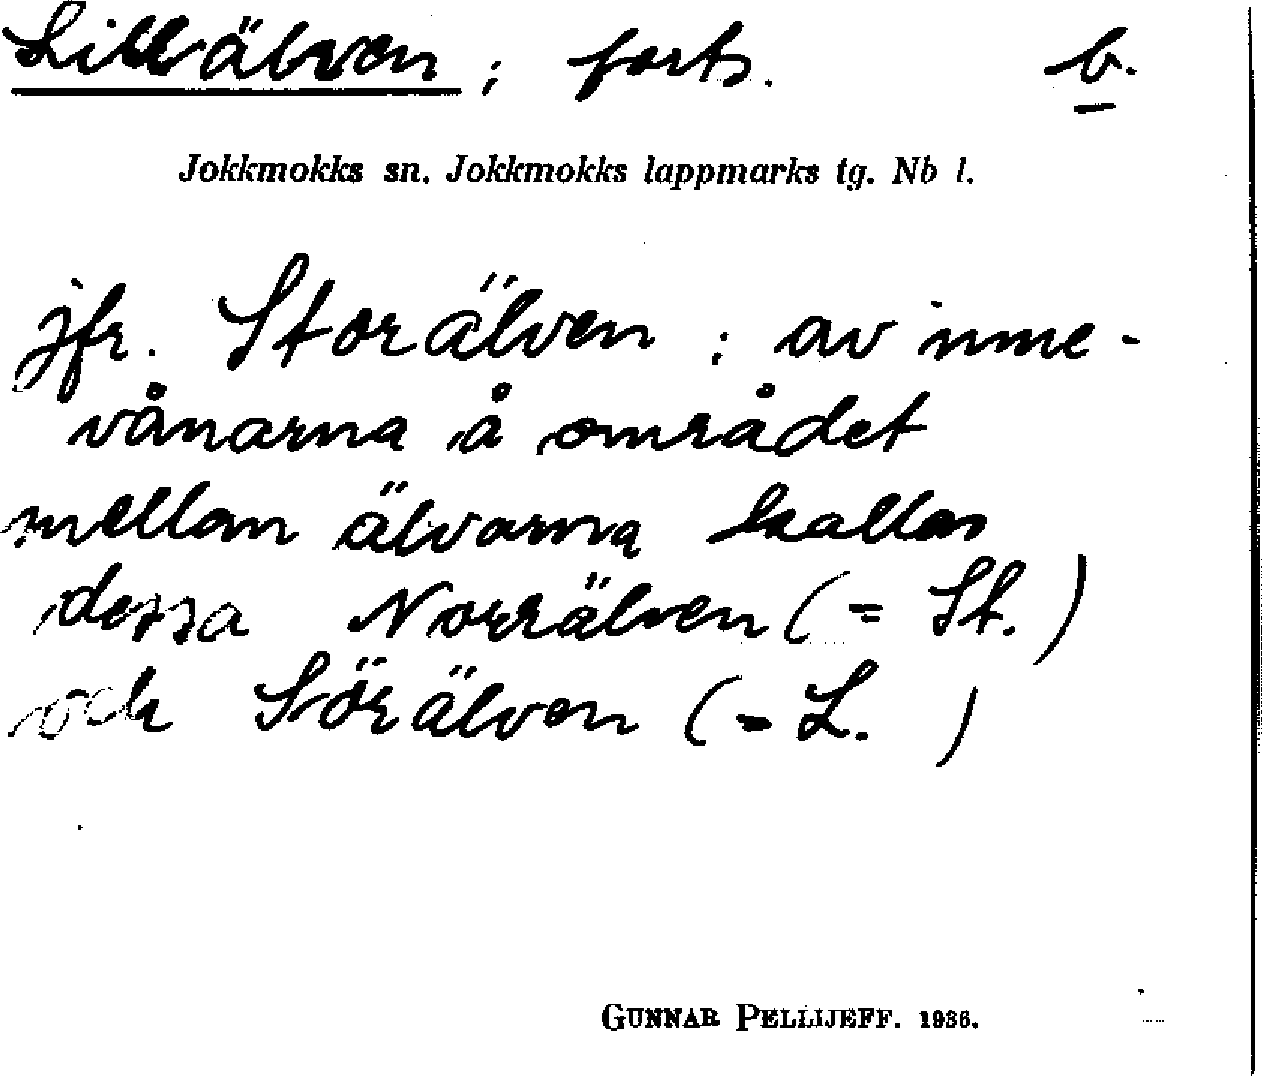 Lillälven ; forts. b.
Jokkmokks sn. Jokkmokks lappmarks tg. Nb l.
jfr. Storälven ; av inne-
vånarna å området
mellan älvarna kallas
dessa Norrälven (= St.)
och Sörälven (= L. )
GUNNAR PELLIJEFF. 1936.